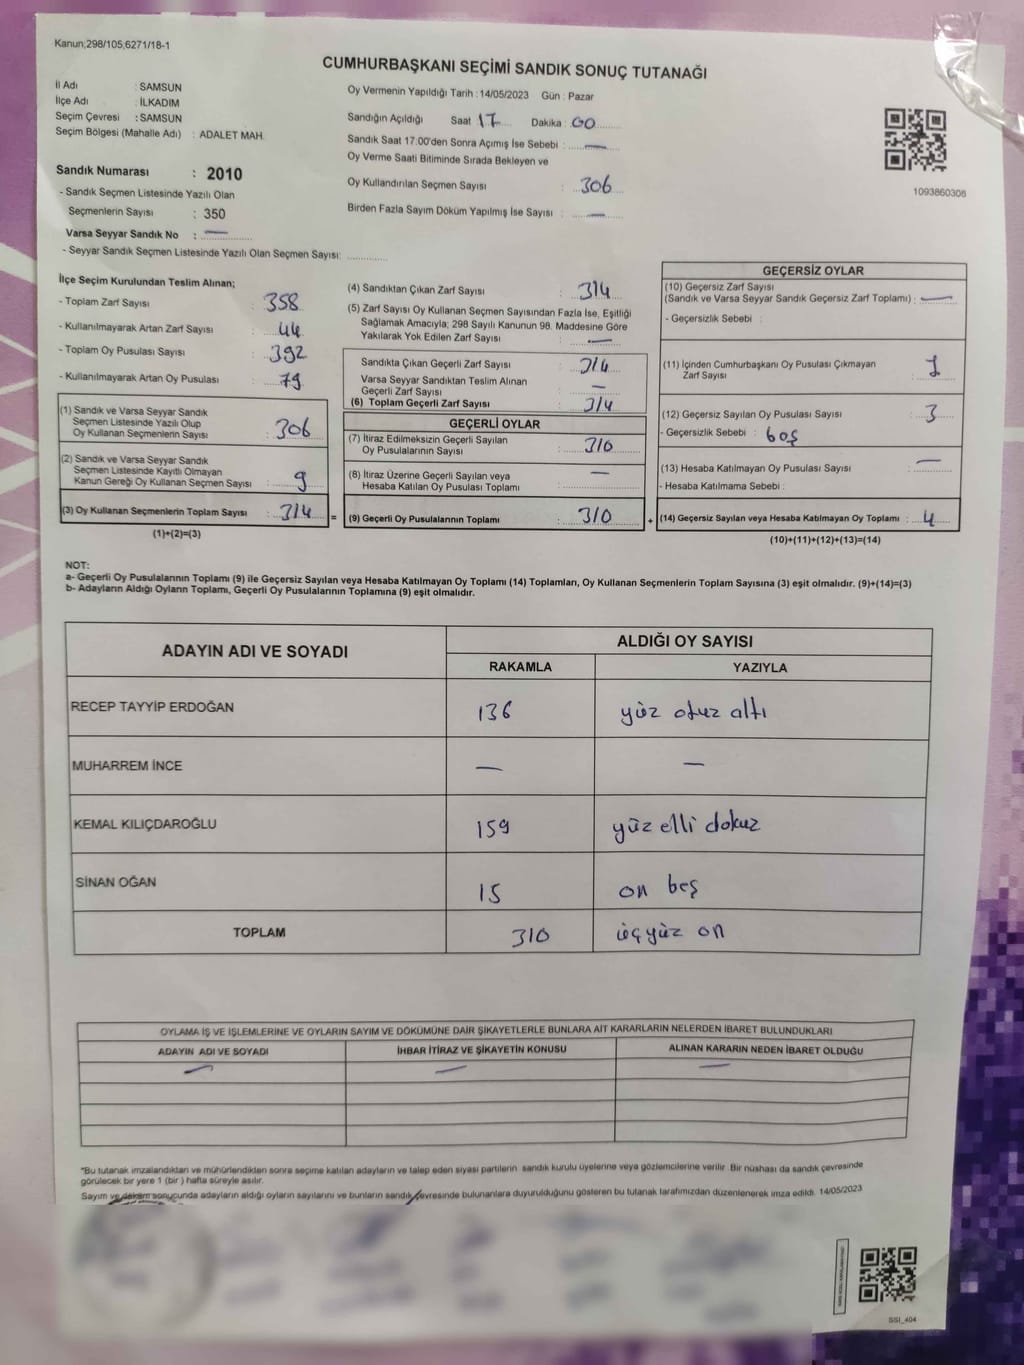 Kanun;298/105,6271/18-1
CUMHURBAŞKANI SEÇİMİ SANDIK SONUÇ TUTANAĞI
İl Adı : SAMSUN
İlçe Adı : İLKADIM
Seçim Çevresi : SAMSUN
Seçim Bölgesi (Mahalle Adı) : ADALET MAH.
Sandık Numarası : 2010
- Sandık Seçmen Listesinde Yazılı Olan
Seçmenlerin Sayısı : 350
Varsa Seyyar Sandık No : —
- Seyyar Sandık Seçmen Listesinde Yazılı Olan Seçmen Sayısı: ............
Oy Vermenin Yapıldığı Tarih : 14/05/2023 Gün : Pazar
Sandığın Açıldığı Saat 17 Dakika : 00
Sandık Saat 17:00'den Sonra Açımış İse Sebebi : —
Oy Verme Saati Bitiminde Sırada Bekleyen ve
Oy Kullandırılan Seçmen Sayısı : 306
Birden Fazla Sayım Döküm Yapılmış İse Sayısı : —
1093860306
İlçe Seçim Kurulundan Teslim Alınan;
- Toplam Zarf Sayısı : 358
- Kullanılmayarak Artan Zarf Sayısı : 44
- Toplam Oy Pusulası Sayısı : 392
- Kullanılmayarak Artan Oy Pusulası : 79
(1) Sandık ve Varsa Seyyar Sandık
Seçmen Listesinde Yazılı Olup
Oy Kullanan Seçmenlerin Sayısı : 306
(2) Sandık ve Varsa Seyyar Sandık
Seçmen Listesinde Kayıtlı Olmayan
Kanun Gereği Oy Kullanan Seçmen Sayısı : 9
(3) Oy Kullanan Seçmenlerin Toplam Sayısı : 314 =
(1)+(2)=(3)
(4) Sandıktan Çıkan Zarf Sayısı : 314
(5) Zarf Sayısı Oy Kullanan Seçmen Sayısından Fazla İse, Eşitliği
Sağlamak Amacıyla; 298 Sayılı Kanunun 98. Maddesine Göre
Yakılarak Yok Edilen Zarf Sayısı : —
Sandıkta Çıkan Geçerli Zarf Sayısı : 314
Varsa Seyyar Sandıktan Teslim Alınan
Geçerli Zarf Sayısı : —
(6) Toplam Geçerli Zarf Sayısı : 314
GEÇERLİ OYLAR
(7) İtiraz Edilmeksizin Geçerli Sayılan
Oy Pusulalarının Sayısı : 310
(8) İtiraz Üzerine Geçerli Sayılan veya
Hesaba Katılan Oy Pusulası Toplamı : —
(9) Geçerli Oy Pusulalarının Toplamı : 310 +
GEÇERSİZ OYLAR
(10) Geçersiz Zarf Sayısı
(Sandık ve Varsa Seyyar Sandık Geçersiz Zarf Toplamı) : —
- Geçersizlik Sebebi :
(11) İçinden Cumhurbaşkanı Oy Pusulası Çıkmayan
Zarf Sayısı : 1
(12) Geçersiz Sayılan Oy Pusulası Sayısı : 3
- Geçersizlik Sebebi : boş
(13) Hesaba Katılmayan Oy Pusulası Sayısı : —
- Hesaba Katılmama Sebebi :
(14) Geçersiz Sayılan veya Hesaba Katılmayan Oy Toplamı : 4
(10)+(11)+(12)+(13)=(14)
NOT:
a- Geçerli Oy Pusulalarının Toplamı (9) ile Geçersiz Sayılan veya Hesaba Katılmayan Oy Toplamı (14) Toplamları, Oy Kullanan Seçmenlerin Toplam Sayısına (3) eşit olmalıdır. (9)+(14)=(3)
b- Adayların Aldığı Oyların Toplamı, Geçerli Oy Pusulalarının Toplamına (9) eşit olmalıdır.
ADAYIN ADI VE SOYADI ALDIĞI OY SAYISI
RAKAMLA YAZIYLA
RECEP TAYYİP ERDOĞAN 136 yüz otuz altı
MUHARREM İNCE — —
KEMAL KILIÇDAROĞLU 159 yüz elli dokuz
SİNAN OĞAN 15 on beş
TOPLAM 310 üçyüz on
OYLAMA İŞ VE İŞLEMLERİNE VE OYLARIN SAYIM VE DÖKÜMÜNE DAİR ŞİKAYETLERLE BUNLARA AİT KARARLARIN NELERDEN İBARET BULUNDUKLARI
ADAYIN ADI VE SOYADI İHBAR İTİRAZ VE ŞİKAYETİN KONUSU ALINAN KARARIN NEDEN İBARET OLDUĞU
— — —
*Bu tutanak imzalandıktan ve mühürlendikten sonra seçime katılan adayların ve talep eden siyasi partilerin sandık kurulu üyelerine veya gözlemcilerine verilir. Bir nüshası da sandık çevresinde
görülecek bir yere 1 (bir ) hafta süreyle asılır.
Sayım ve döküm sonucunda adayların aldığı oyların sayılarını ve bunların sandık çevresinde bulunanlara duyurulduğunu gösteren bu tutanak tarafımızdan düzenlenerek imza edildi. 14/05/2023
SSI_404